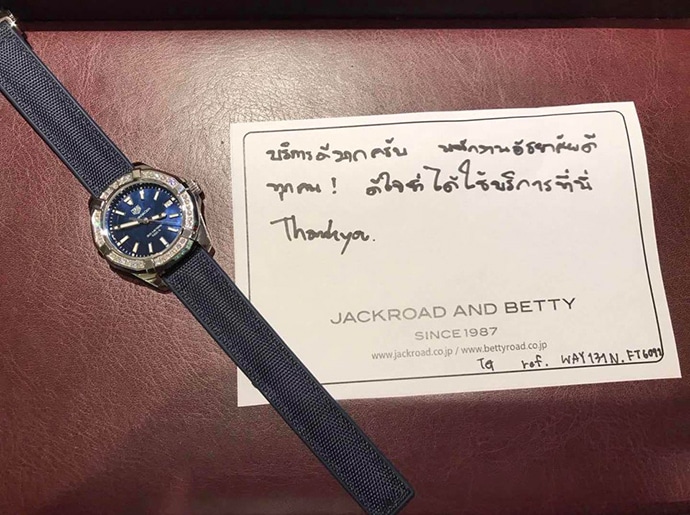 TAGHeuer
บริการดีมากครับ พนักงานอัธยาศัยดี
ทุกคน! ดีใจที่ได้ใช้บริการที่นี่
Thankyou.
JACKROAD AND BETTY
SINCE1987
www.jackroad.co.jp / www.bettyroad.co.jp
TG ref. WAY131N.FT6091